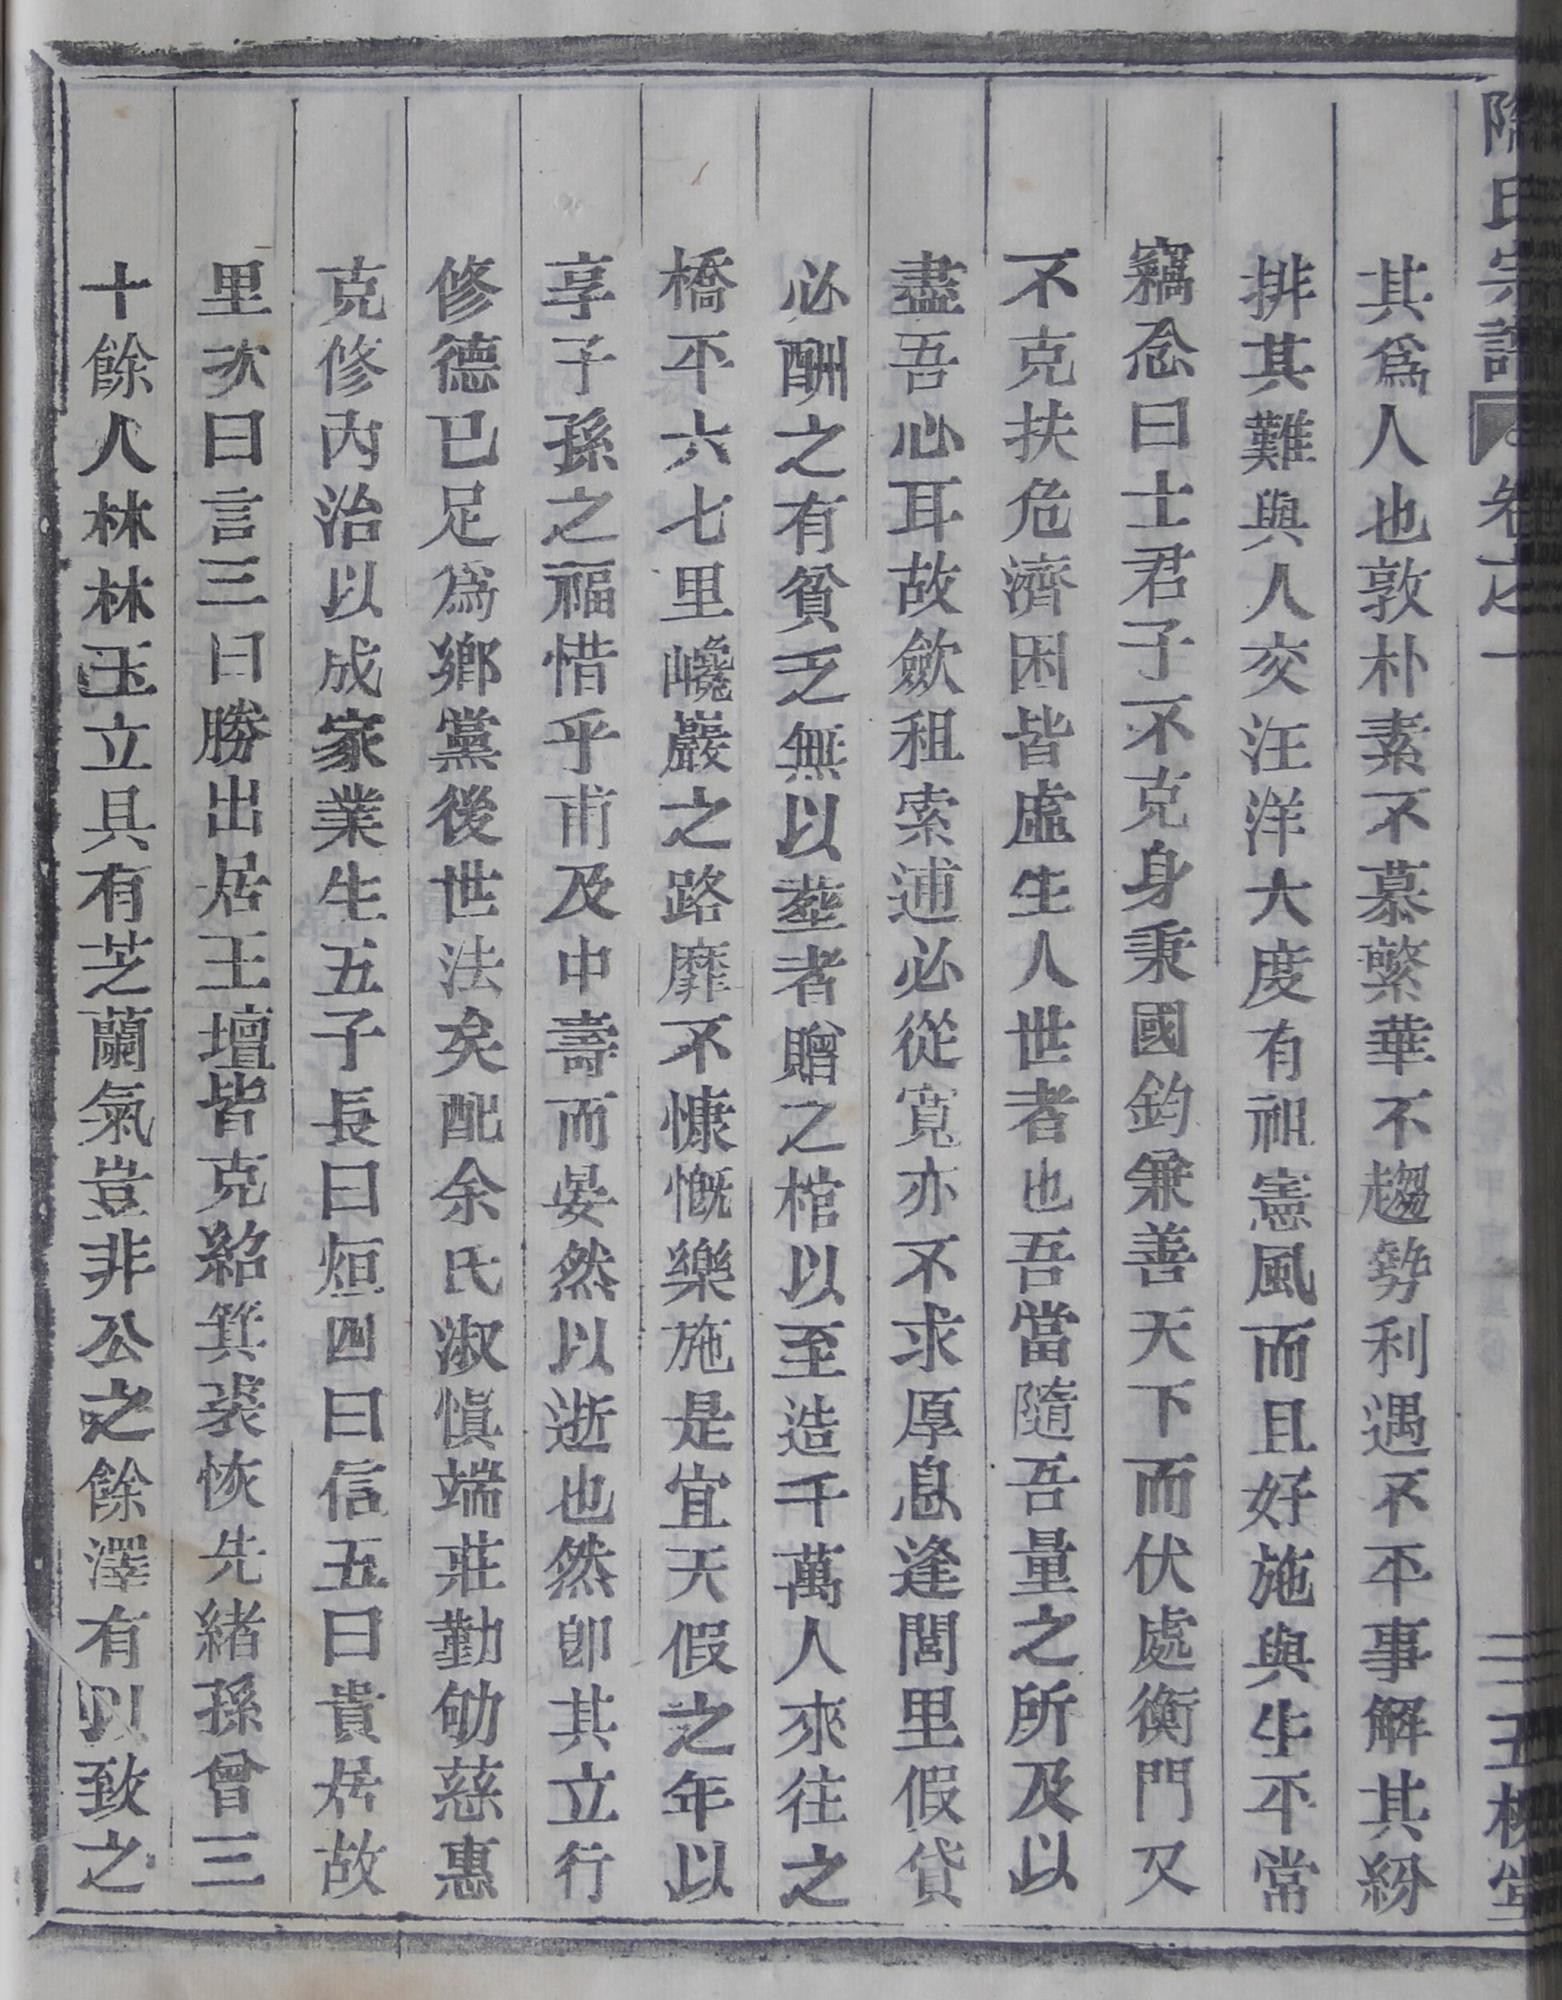 氏宗譜 卷之一 二 五柳堂
其爲人也敦朴素不慕繁華不趨勢利遇不平事解其紛
排其難與人交汪洋大度有祖憲風而且好施與生平常
竊念曰士君子不克身秉國鈞兼善天下而伏處衡門又
不克扶危濟困皆虛生人世者也吾當隨吾量之所及以
盡吾心耳故歛租索逋必從寬亦不求厚息逢閭里假貸
必酬之有貧乏無以塟者贈之棺以至造千萬人來往之
橋平六七里巉巖之路靡不慷慨樂施是宜天假之年以
享子孫之福惜乎甫及中壽而晏然以逝也然卽其立行
修德已足爲鄉黨後世法矣配余氏淑愼端莊勤劬慈惠
克修內治以成家業生五子長曰烜四曰信五曰貴居故
里次曰言三曰勝出居王壇皆克紹箕裘恢先緒孫曾三
十餘人林林玉立具有芝蘭氣豈非公之餘澤有以致之